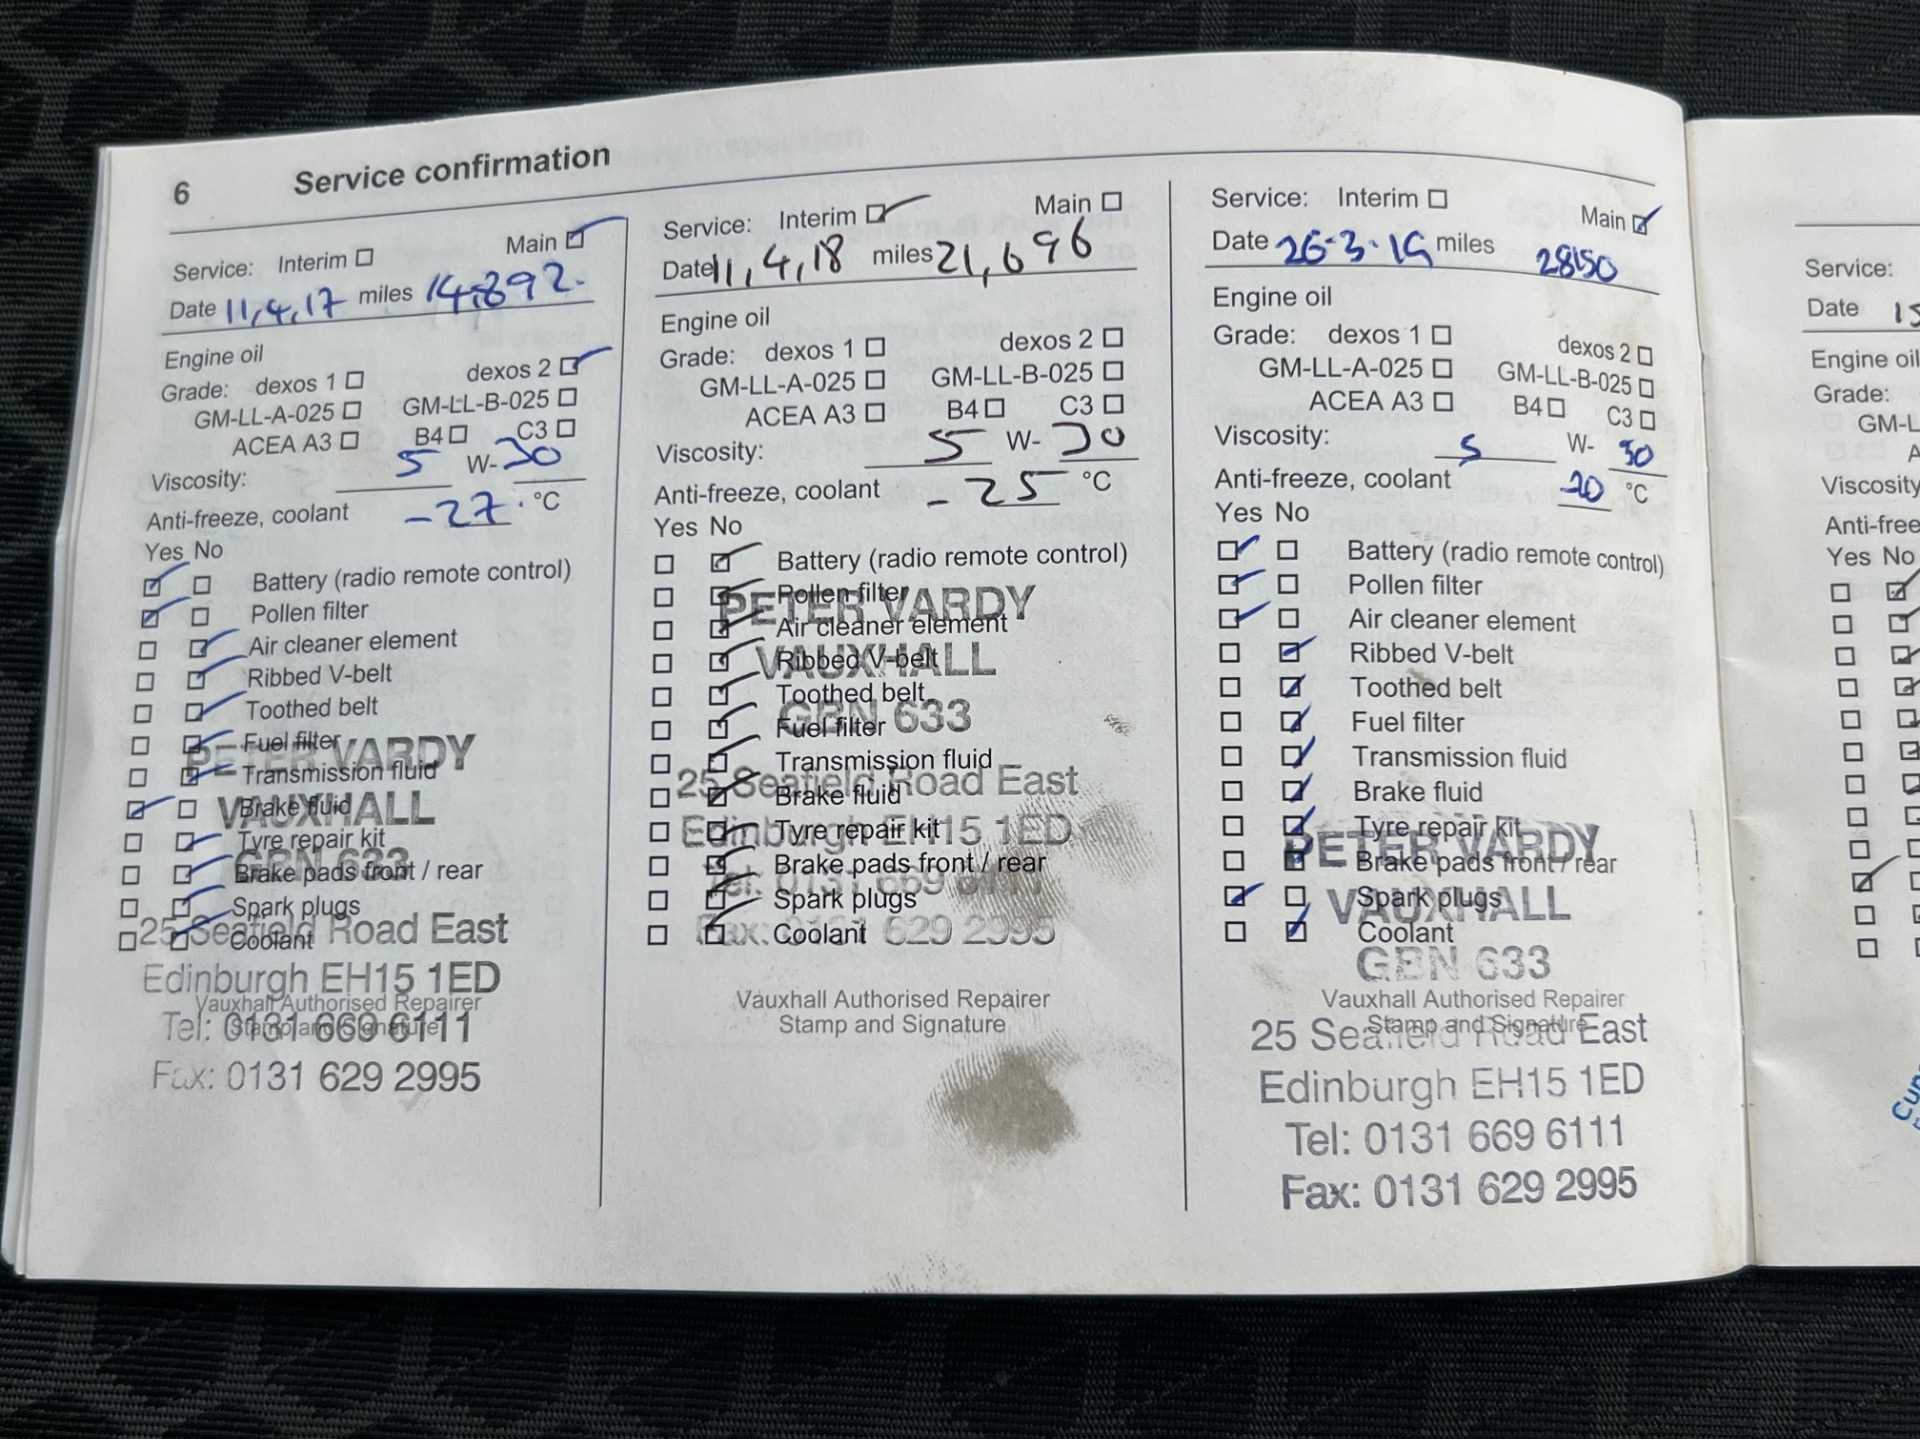 6 Service confirmation
Service: Interim Main
Date 11,4,17 miles 14,892.
Engine oil
Grade: dexos 1 dexos 2
GM-LL-A-025 GM-LL-B-025
ACEA A3 B4 C3
Viscosity: 5 W- 30
Anti-freeze, coolant -27. °C
Yes No
Battery (radio remote control)
Pollen filter
Air cleaner element
Ribbed V-belt
Toothed belt
Fuel filter
Transmission fluid
Brake fluid
Tyre repair kit
Brake pads front / rear
Spark plugs
Coolant
Vauxhall Authorised Repairer
Stamp and Signature
PETER VARDY
VAUXHALL
GBN 633
25 Seafield Road East
Edinburgh EH15 1ED
Tel: 0131 669 6111
Fax: 0131 629 2995
Service: Interim Main
Date 11,4,18 miles 21,696
Engine oil
Grade: dexos 1 dexos 2
GM-LL-A-025 GM-LL-B-025
ACEA A3 B4 C3
Viscosity: 5 W- 30
Anti-freeze, coolant -25 °C
Yes No
Battery (radio remote control)
Pollen filter
Air cleaner element
Ribbed V-belt
Toothed belt
Fuel filter
Transmission fluid
Brake fluid
Tyre repair kit
Brake pads front / rear
Spark plugs
Coolant
PETER VARDY
VAUXHALL
GBN 633
25 Seafield Road East
Edinburgh EH15 1ED
Tel: 0131 669 6111
Fax: 0131 629 2995
Vauxhall Authorised Repairer
Stamp and Signature
Service: Interim Main
Date 26-3-19 miles 28150
Engine oil
Grade: dexos 1 dexos 2
GM-LL-A-025 GM-LL-B-025
ACEA A3 B4 C3
Viscosity: 5 W- 30
Anti-freeze, coolant -20 °C
Yes No
Battery (radio remote control)
Pollen filter
Air cleaner element
Ribbed V-belt
Toothed belt
Fuel filter
Transmission fluid
Brake fluid
Tyre repair kit
Brake pads front / rear
Spark plugs
Coolant
Vauxhall Authorised Repairer
Stamp and Signature
PETER VARDY
VAUXHALL
GBN 633
25 Seafield Road East
Edinburgh EH15 1ED
Tel: 0131 669 6111
Fax: 0131 629 2995
Service:
Date 15
Engine oil
Grade:
GM-L
A
Viscosity
Anti-free
Yes No